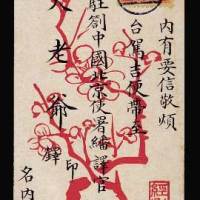 内有要信敬煩
台駕吉便帶至
駐劄中國北京使署繙譯官
大老爺
印
名内